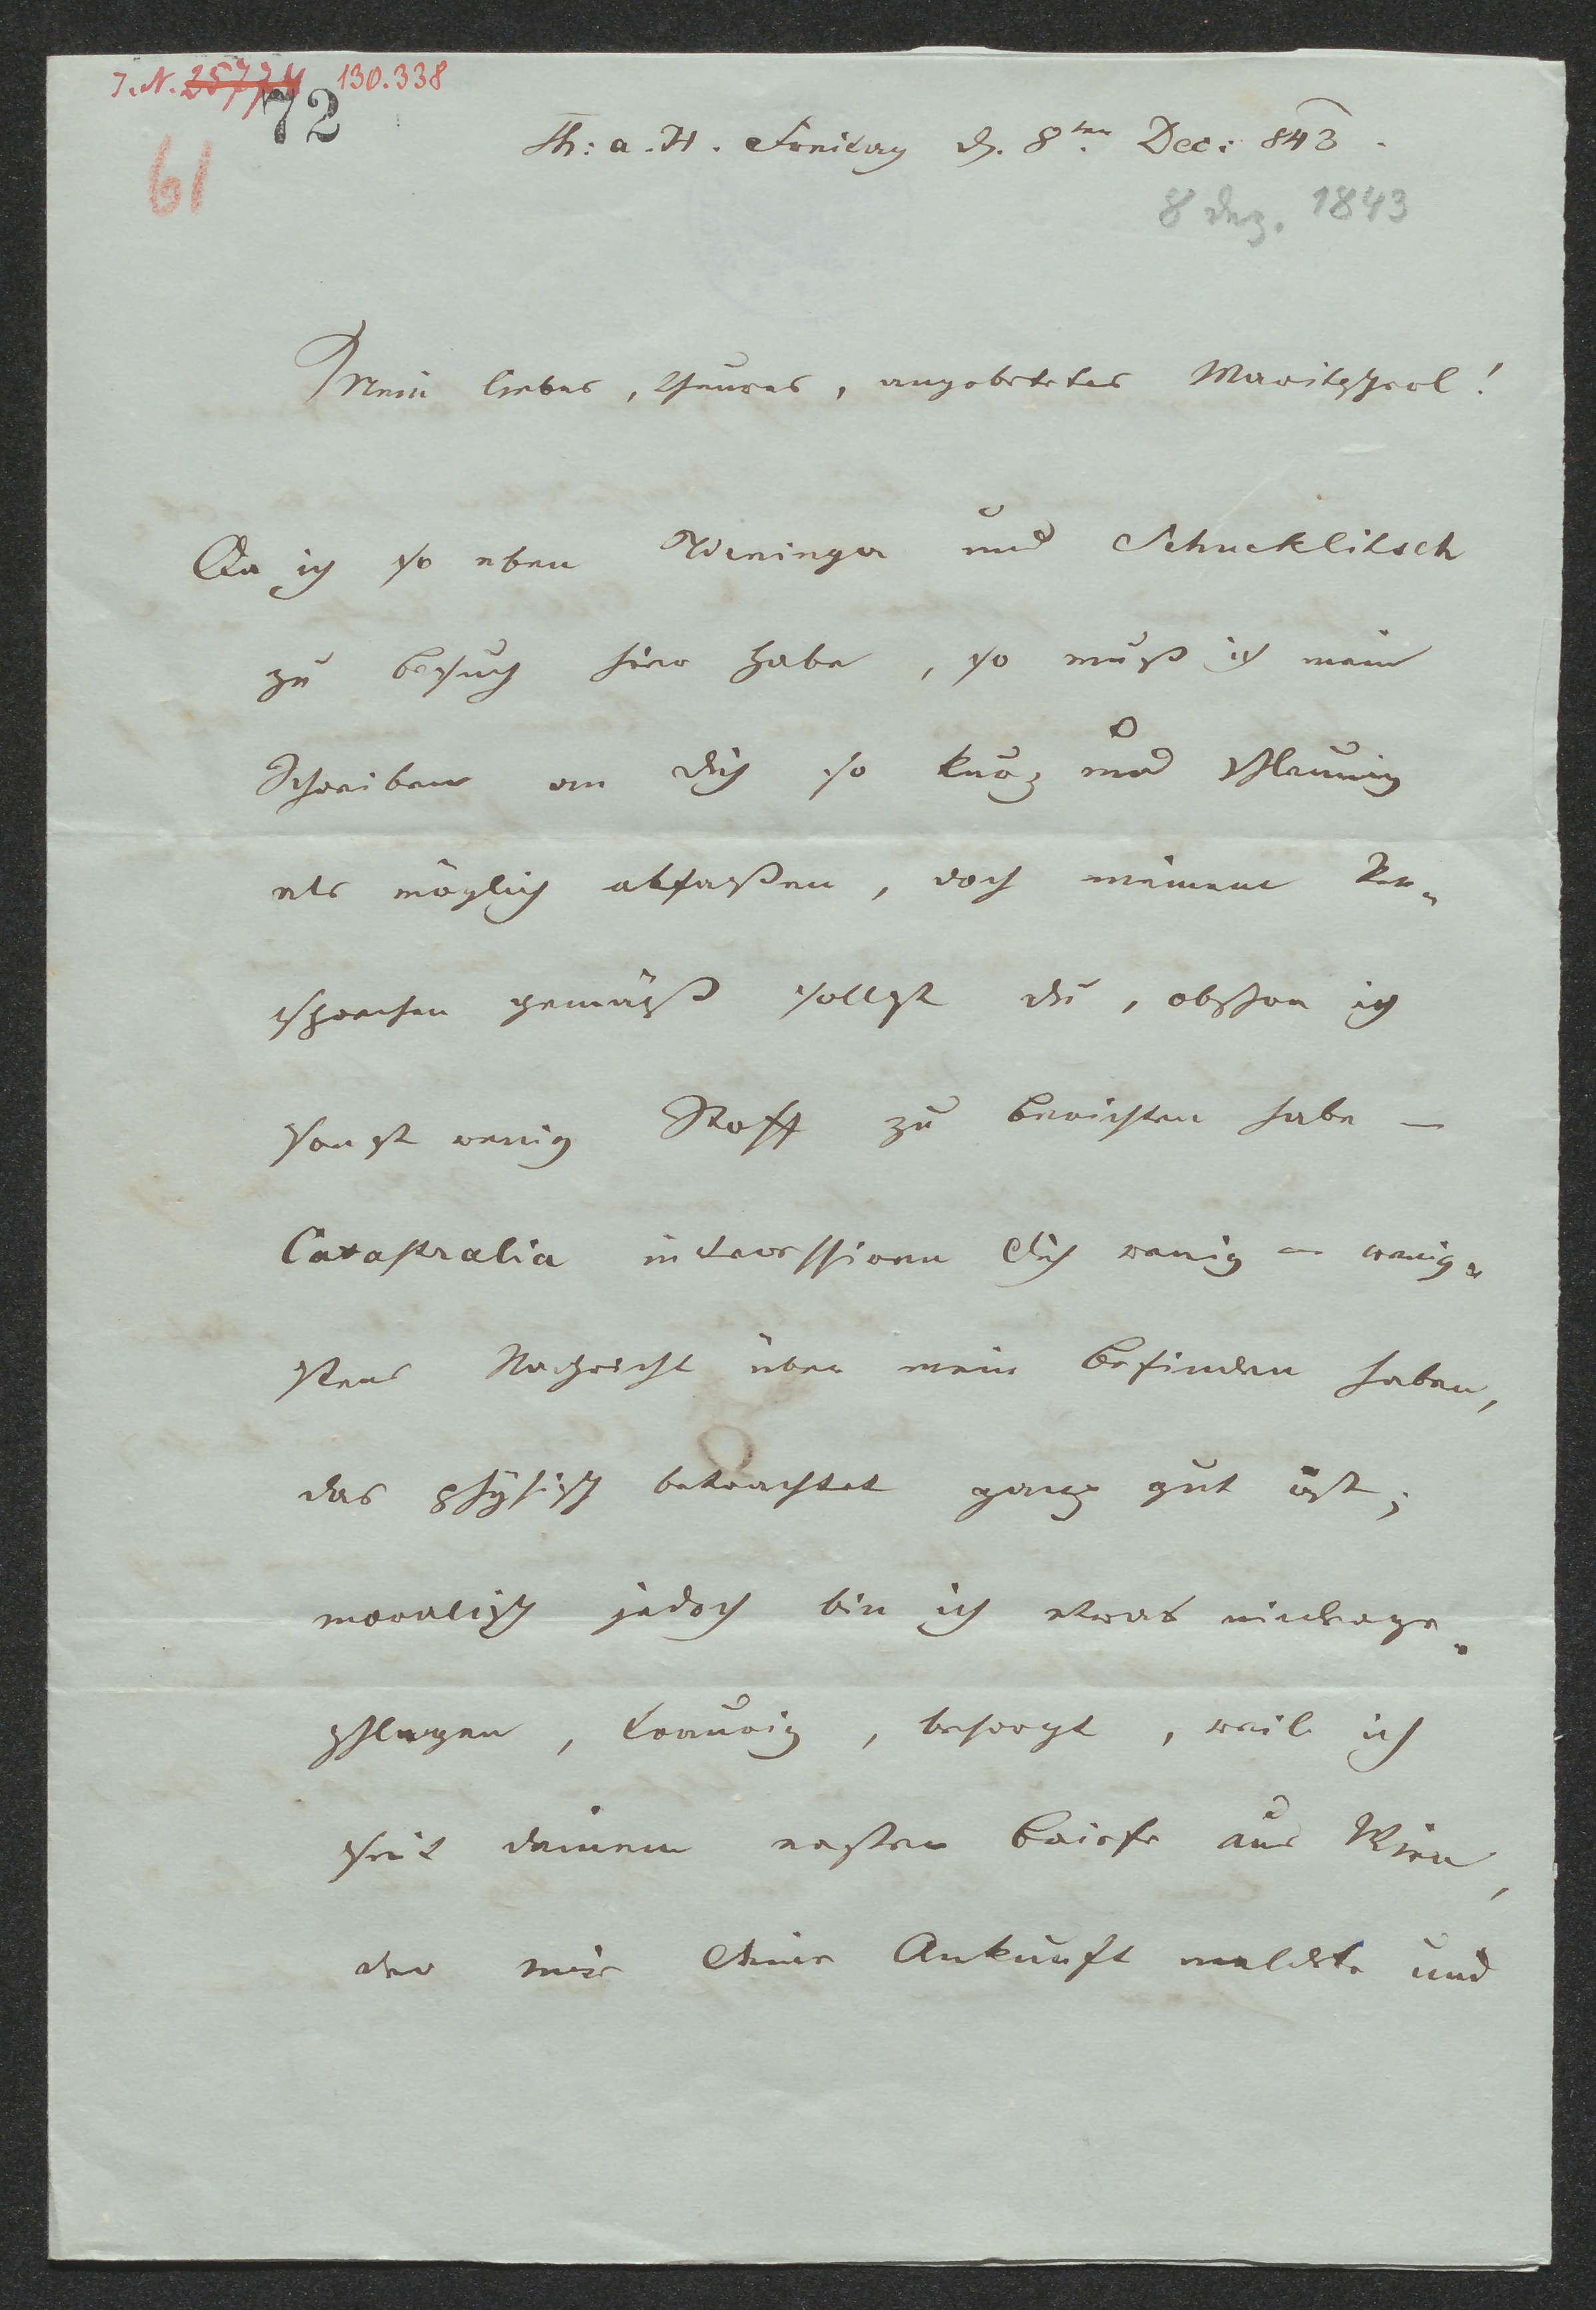 I. N. 25774 130.338
72
61
Th: a. H. Freitag d. 8ten Dec: 843.
8 Dez. 1843
Mein liebes, theures, angebetetes
Da ich so eben Weninger und Schucklitsch
zu Besuch hier habe, so muß ich mein
Schreiben an dich so kurz und schleunig
als möglich abfaßen, doch meinem Ver-
sprechen gemäß sollst du, obschon ich
sonst wenig Stoff zu berichten habe –
Catastralia interessiren Dich wenig – wenig-
stens Nachricht über mein Befinden haben,
das physisch betrachtet ganz gut ist;
moralisch jedoch bin ich etwas niederge-
schlagen, traurig, besorgt, weil ich
seit deinem ersten Briefe aus Wien,
der mir Deine Ankunft meldete und